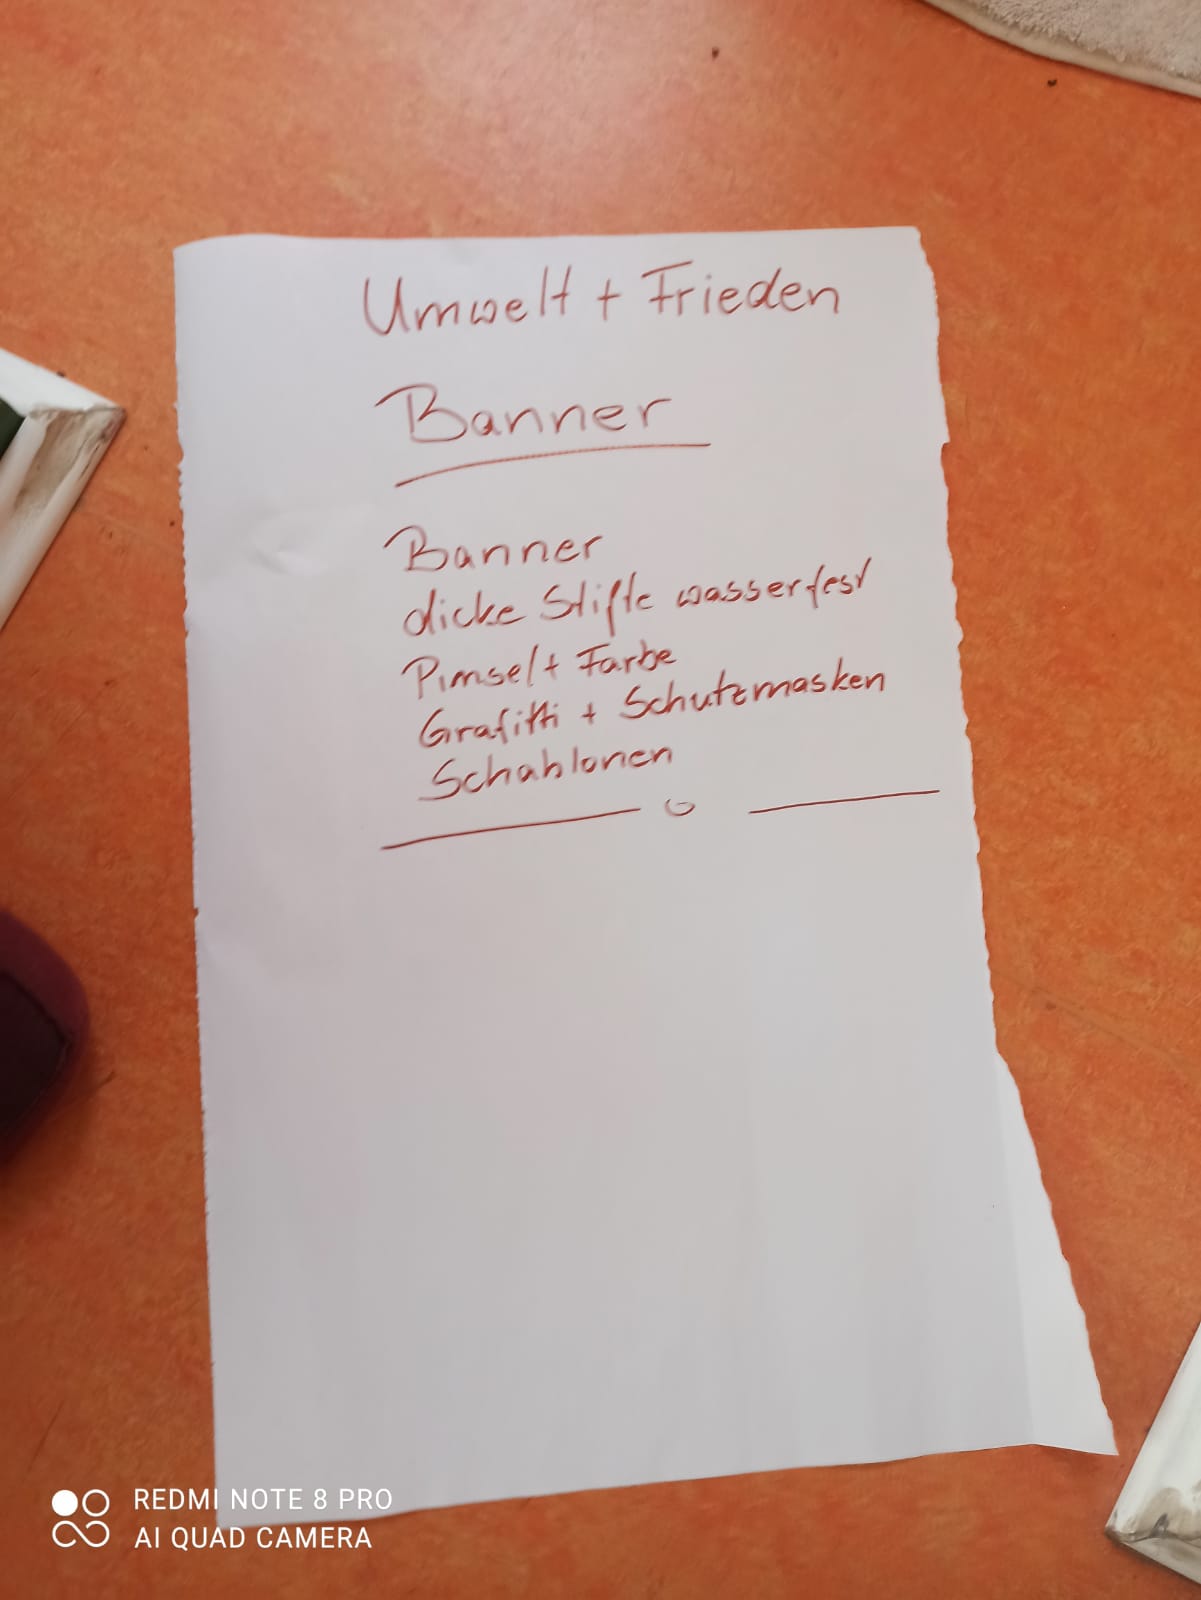 Umwelt + Frieden
Banner
Banner
dicke Stifte wasserfest
Pimsel + Farbe
Grafitti + Schutzmasken
Schablonen
REDMI NOTE 8 PRO
AI QUAD CAMERA